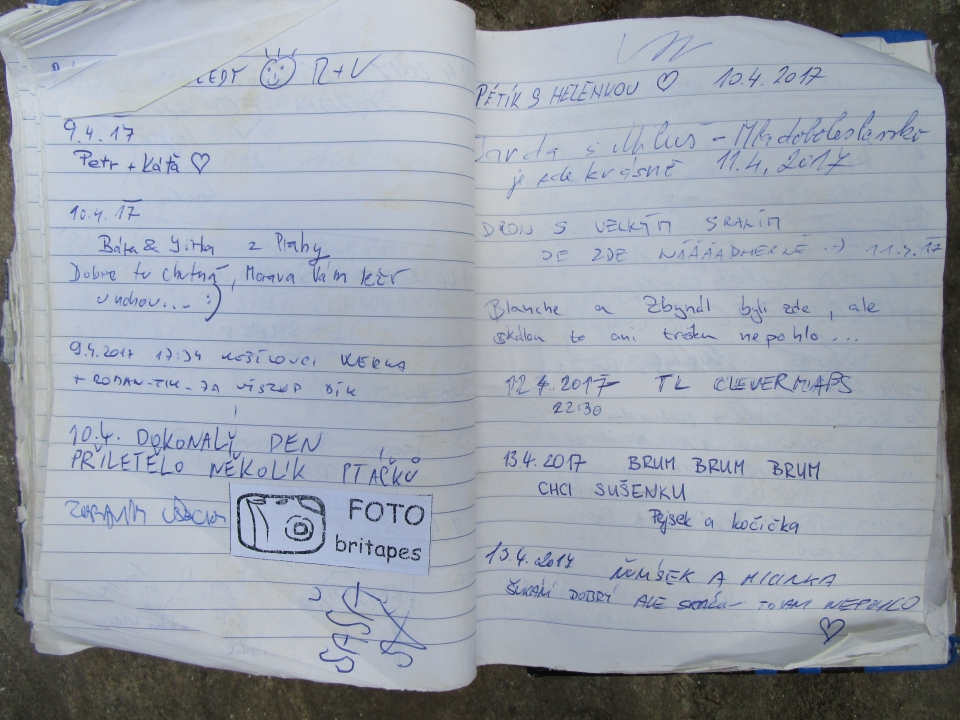 LEDY R+V
9.4.17
Petr + Káťa
10.4.17
Bára & Jirka z Prahy
Dobře tu chutná, Morava Vám
v nohou... :)
9.4.2017 17:34
+ ROMAN-TIK-ZA VÍSTUP DÍK
10.4. DOKONALÝ DEN
PŘILETĚLO NĚKOLIK PTÁČKŮ
ZDRAVÍM
FOTO
britapes
PÉTÍK S HELENKOU 10.4.2017
Jarda s - Mladoboleslavsko
je zde krásně 11.4.2017
DRON S VELKÝM
JE ZDE NÁÁÁDHERNĚ :-) 11.4.17
Blanche a Zbyndl byli zde, ale
skálou to ani trošku nepohlo...
12.4.2017 TL CLEVERMAPS
22:30
13.4.2017 BRUM BRUM BRUM
CHCI SUŠENKU
Pejsek a kočička
13.4.2017 ŇUMÍSEK A MICINKA
ŠUKÁNÍ DOBRÝ ALE NEPOHLO